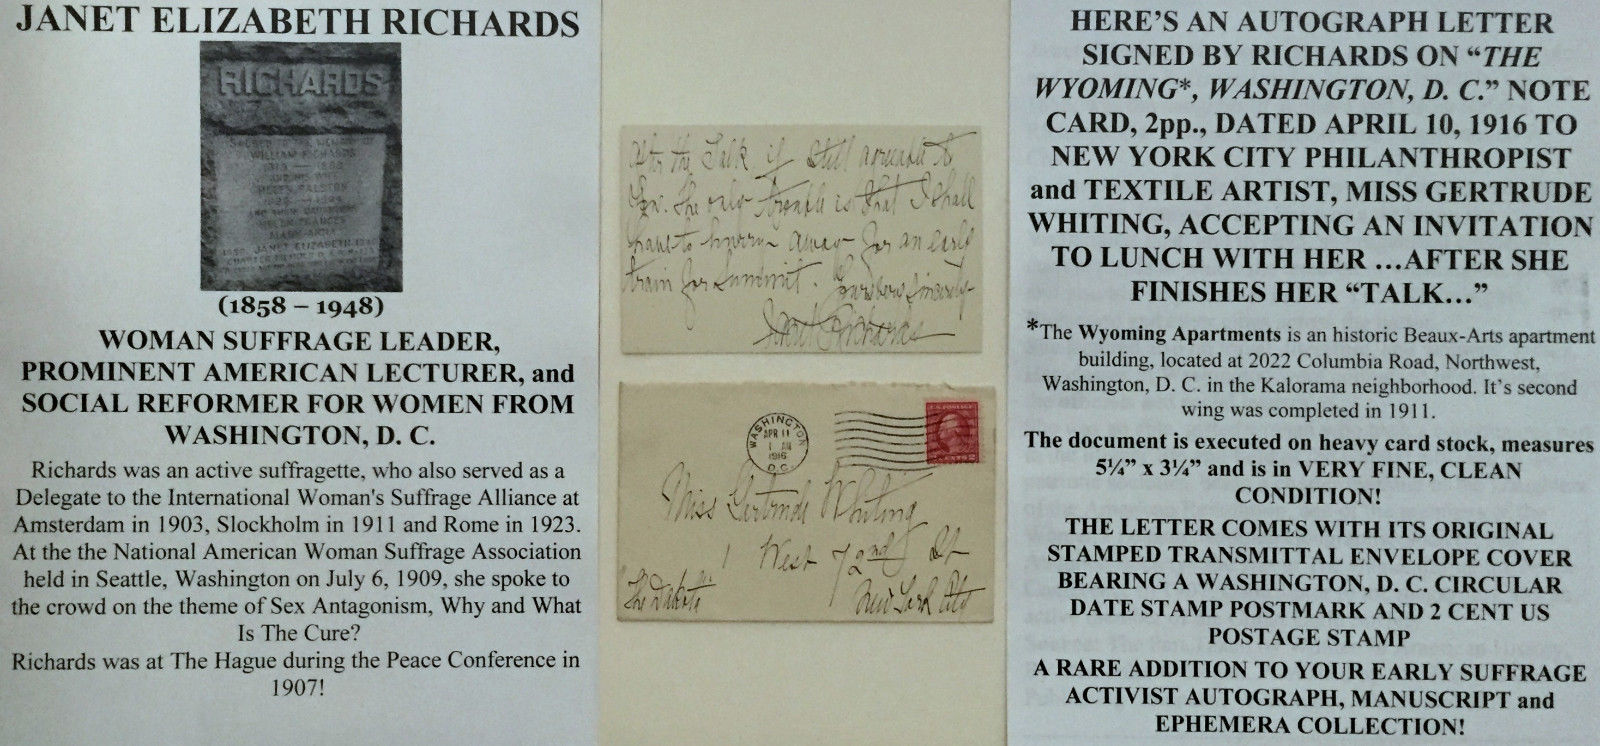 JANET ELIZABETH RICHARDS
RICHARDS
SACRED TO THE MEMORY OF
WILLIAM RICHARDS
AND HIS WIFE
HELEN RALSTON
AND THEIR DAUGHTERS
JANET ELIZABETH
(1858 – 1948)
WOMAN SUFFRAGE LEADER,
PROMINENT AMERICAN LECTURER, and
SOCIAL REFORMER FOR WOMEN FROM
WASHINGTON, D. C.
Richards was an active suffragette, who also served as a
Delegate to the International Woman's Suffrage Alliance at
Amsterdam in 1903, Slockholm in 1911 and Rome in 1923.
At the the National American Woman Suffrage Association
held in Seattle, Washington on July 6, 1909, she spoke to
the crowd on the theme of Sex Antagonism, Why and What
Is The Cure?
Richards was at The Hague during the Peace Conference in
1907!
After the Talk if still agreeable to
you. The only trouble is that I shall
have to hurry away for an early
train for Summit. Yours very sincerely
Janet Richards
WASHINGTON
APR 11
1 AM
1916
D.C.
U.S. POSTAGE
2 CENTS 2
Miss Gertrude Whiting
1 West 72nd St
"The Dakota"
New York City
HERE'S AN AUTOGRAPH LETTER
SIGNED BY RICHARDS ON “THE
WYOMING*, WASHINGTON, D. C.” NOTE
CARD, 2pp., DATED APRIL 10, 1916 TO
NEW YORK CITY PHILANTHROPIST
and TEXTILE ARTIST, MISS GERTRUDE
WHITING, ACCEPTING AN INVITATION
TO LUNCH WITH HER ...AFTER SHE
FINISHES HER “TALK...”
*The Wyoming Apartments is an historic Beaux-Arts apartment
building, located at 2022 Columbia Road, Northwest,
Washington, D. C. in the Kalorama neighborhood. It's second
wing was completed in 1911.
The document is executed on heavy card stock, measures
5¼” x 3¼” and is in VERY FINE, CLEAN
CONDITION!
THE LETTER COMES WITH ITS ORIGINAL
STAMPED TRANSMITTAL ENVELOPE COVER
BEARING A WASHINGTON, D. C. CIRCULAR
DATE STAMP POSTMARK AND 2 CENT US
POSTAGE STAMP
A RARE ADDITION TO YOUR EARLY SUFFRAGE
ACTIVIST AUTOGRAPH, MANUSCRIPT and
EPHEMERA COLLECTION!